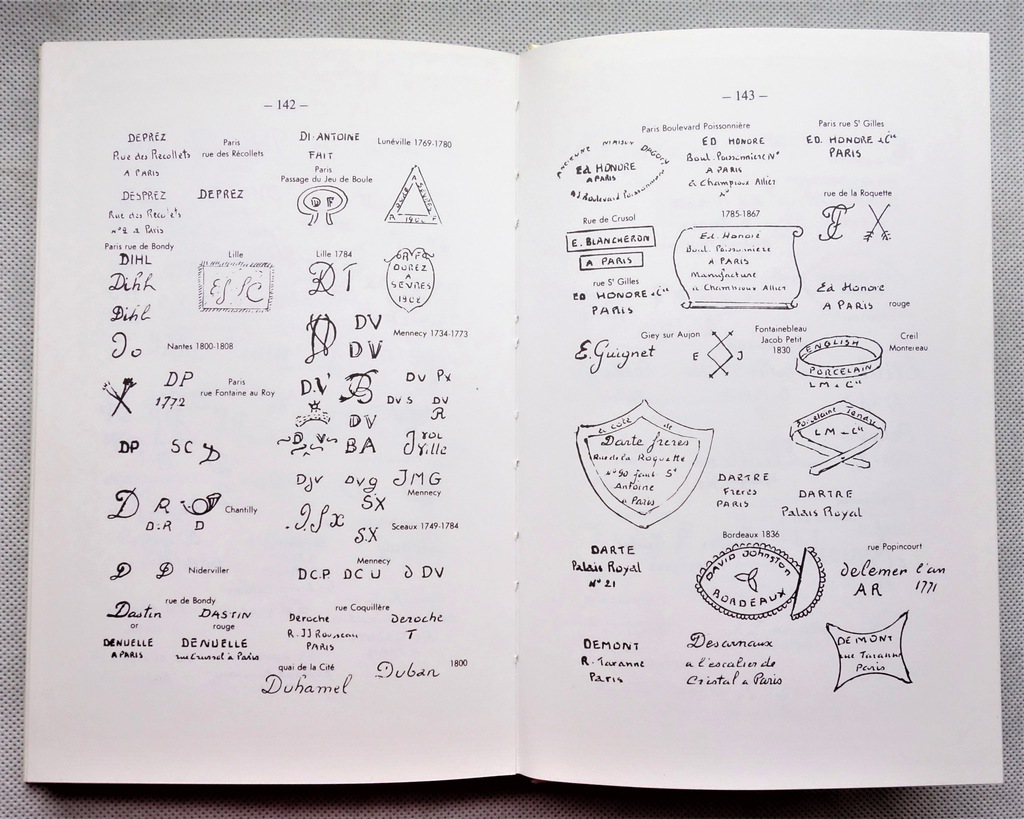 – 142 –
DEPRÉZ
Rue des Recollets
A PARIS
Paris
rue des Récollets
DI·ANTOINE
FAIT
Lunéville 1769-1780
DESPREZ
Rue des Recolets
n°2 à Paris
DEPREZ
Paris
Passage du Jeu de Boule
DF
SÈVRES
A F
1906
Paris rue de Bondy
DIHL
Dihl
Dihl
Lille
Lille 1784
OUREZ
A
SÈVRES
1906
Nantes 1800-1808
DV
DV
Mennecy 1734-1773
DP
1772
Paris
rue Fontaine au Roy
D.V
B
DV Px
DV S
DV
R
DV
DP
SC
D
D V
BA
DJV
DVg
JMG
Mennecy
D
R
D.R
D
Chantilly
SX
S.X
Sceaux 1749-1784
D
D
Niderviller
Mennecy
DC.P
DCU
DV
rue de Bondy
Dastin
or
DASTIN
rouge
rue Coquillère
Deroche
R. JJ Rousseau
PARIS
Deroche
T
DENUELLE
A PARIS
DENUELLE
rue Crussel à Paris
quai de la Cité
Duhamel
Duban
1800
– 143 –
Paris Boulevard Poissonnière
Paris rue St Gilles
ANCIENNE MAISON DAGOTY
Ed HONORE
A PARIS
Boulevard Poissonnière
ED HONORE
Boul. Poissonniere N°
A PARIS
à Champroux Allier
N°
ED. HONORE & Cie
PARIS
Rue de Crusol
E. BLANCHERON
A PARIS
1785-1867
Ed. Honoré
Boul. Poissonniere
A PARIS
Manufacture
à Champroux Allier
rue de la Roquette
rue St Gilles
ED HONORE & Cie
PARIS
Ed Honore
A PARIS
rouge
Giey sur Aujon
E. Guignet
E J
Fontainebleau
Jacob Petit
1830
Creil
Montereau
ENGLISH
PORCELAIN
LM & Cie
a côté de
Darte freres
Rue de la Roquette
n° 90 faub St
Antoine
a Paris
Porcelaine Tendre
LM & Cie
DARTRE
Freres
PARIS
DARTRE
Palais Royal
DARTE
Palais Royal
N° 21
Bordeaux 1836
DAVID Johnston
BORDEAUX
rue Popincourt
delemer l'an
AR 1771
DEMONT
R. Taranne
Paris
Descarnaux
a l'escalier de
Cristal a Paris
DEMONT
rue Taranne
Paris